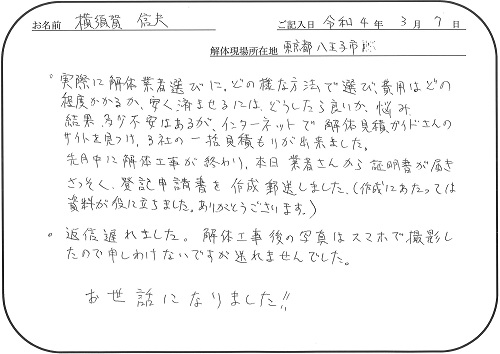 お名前 横須賀 信夫 ご記入日 令和 4 年 3 月 7 日
解体現場所在地 東京都 八王子市
。実際に解体業者選びに、どの様な方法で選び、費用はどの
程度かかるか、安く済ませるには、どうしたら良いか、悩み
結果、多少不安はあるが、インターネットで解体見積ガイドさんの
サイトを見つけ、3社の一括見積もりが出来ました。
先月中に解体工事が終わり、本日業者さんから証明書が届き
さっそく、登記申請書を作成郵送しました。(作成にあたっては
資料が役に立ちました。ありがとうございます。)
。返信遅れました。解体工事後の写真はスマホで撮影し
たので申しわけないですが送れませんでした。
お世話になりました!!